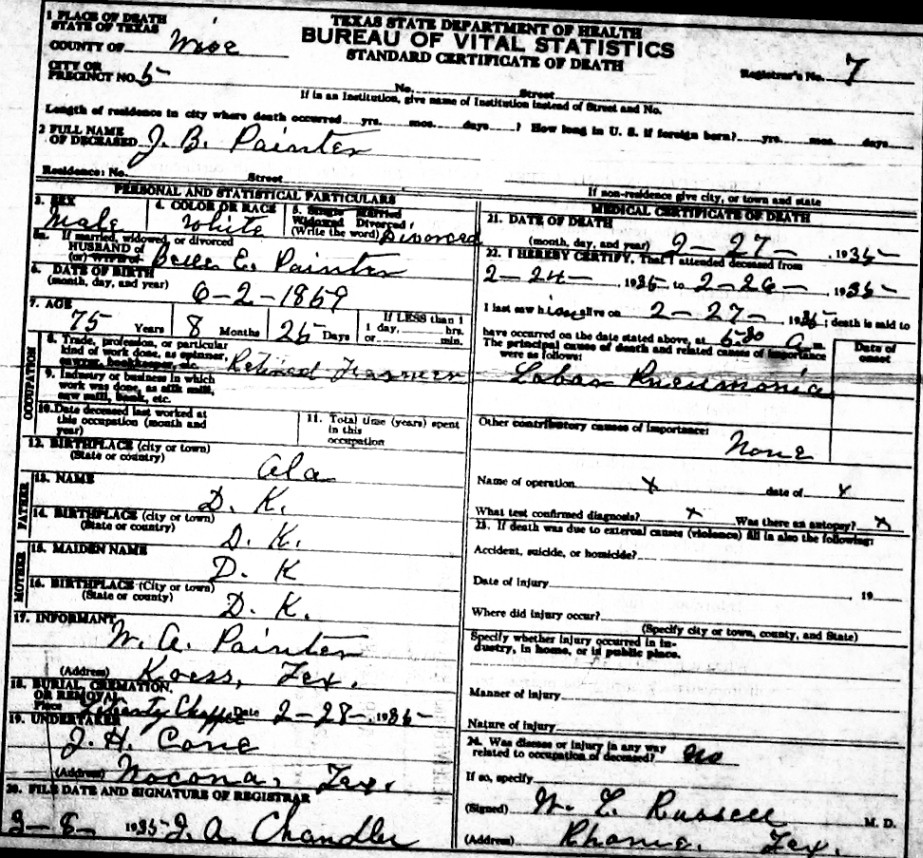 TEXAS STATE DEPARTMENT OF HEALTH
BUREAU OF VITAL STATISTICS
STANDARD CERTIFICATE OF DEATH
1 PLACE OF DEATH
STATE OF TEXAS
COUNTY OF Wise
CITY OR
PRECINCT NO. 5
No. Street
Registrar's No. 7
If in an Institution, give name of Institution instead of Street and No.
Length of residence in city where death occurred yrs. mos. days ? How long in U. S. if foreign born? yrs. mos. days
2 FULL NAME
OF DECEASED J. B. Painter
Residence: No. Street
If non-residence give city, or town and state
PERSONAL AND STATISTICAL PARTICULARS
3. SEX
Male
4. COLOR OR RACE
White
5. Single Married
Widowed Divorced
(Write the word) Divorced
5a. If married, widowed, or divorced
HUSBAND of
(or) WIFE of Belle E. Painter
6. DATE OF BIRTH
(month, day, and year) 6-2-1859
7. AGE
75 Years 8 Months 25 Days
If LESS than 1
1 day, hrs.
or min.
OCCUPATION
8. Trade, profession, or particular
kind of work done, as spinner,
sawyer, bookkeeper, etc. Retired Farmer
9. Industry or business in which
work was done, as silk mill,
saw mill, bank, etc.
10. Date deceased last worked at
this occupation (month and
year)
11. Total time (years) spent
in this
occupation
12. BIRTHPLACE (city or town)
(State or country) Ala
FATHER
13. NAME
D. K.
14. BIRTHPLACE (city or town)
(State or country) D. K.
MOTHER
15. MAIDEN NAME
D. K
16. BIRTHPLACE (City or town)
(State or county) D. K.
17. INFORMANT
W. A. Painter
(Address) Tex.
18. BURIAL, CREMATION,
OR REMOVAL
Place Date 2-28-, 1935
19. UNDERTAKER
J. H.
(Address) Nocona, Tex.
20. FILE DATE AND SIGNATURE OF REGISTRAR
3-8- 1935 J. A. Chandler
MEDICAL CERTIFICATE OF DEATH
21. DATE OF DEATH
(month, day, and year) 2-27-, 1935
22. I HEREBY CERTIFY, That I attended deceased from
2-24- 1935 to 2-26-, 1935
I last saw him alive on 2-27-, 1935; death is said to
have occurred on the date stated above, at 6:30 a m.
The principal cause of death and related causes of importance
were as follows:
Date of
onset
Lobar Pneumonia
Other contributory causes of importance:
None
Name of operation x date of x
What test confirmed diagnosis? x Was there an autopsy? x
23. If death was due to external causes (violence) fill in also the following:
Accident, suicide, or homicide?
Date of injury 19
Where did injury occur?
(Specify city or town, county, and State)
Specify whether injury occurred in in-
dustry, in home, or in public place.
Manner of injury
Nature of injury
24. Was disease or injury in any way
related to occupation of deceased? no
If so, specify
(Signed) W. L. Russell M. D.
(Address) Rhome, Tex.